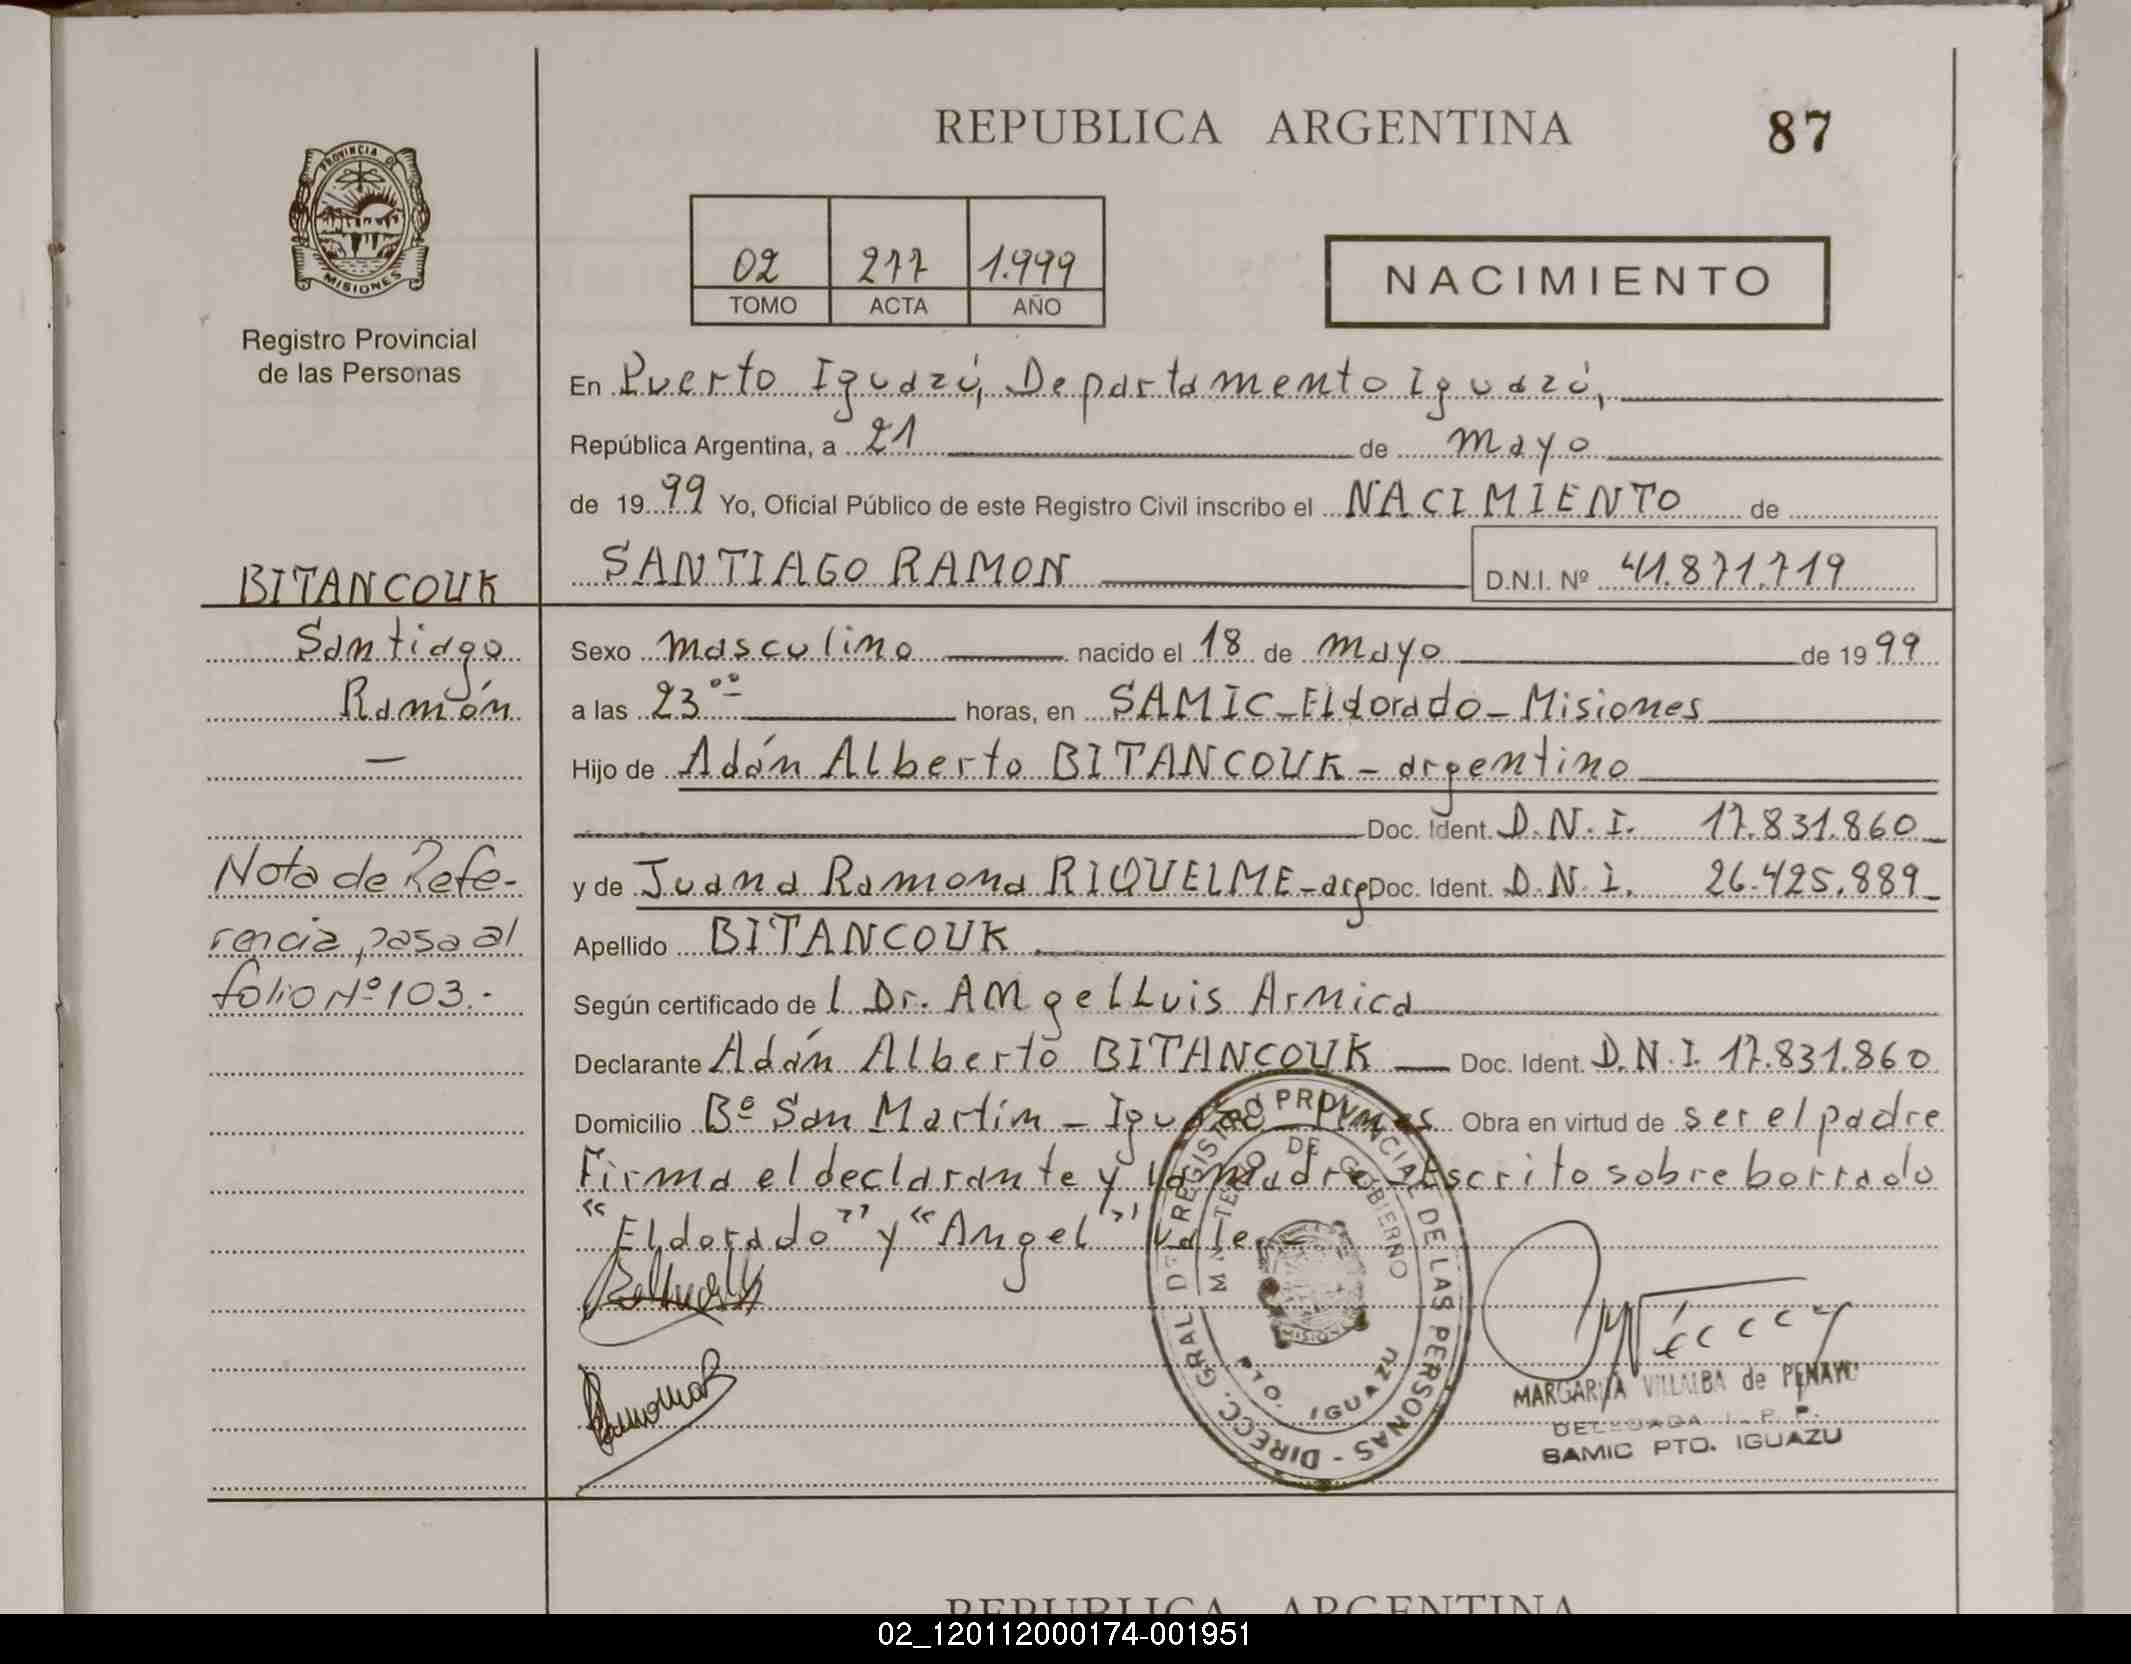 REPUBLICA ARGENTINA 87
PROVINCIA DE
MISIONES
Registro Provincial
de las Personas
02 277 1.999
TOMO ACTA AÑO
NACIMIENTO
En Puerto Iguazú, Departamento Iguazú,
República Argentina, a 21 de mayo
de 19 99 Yo, Oficial Público de este Registro Civil inscribo el NACIMIENTO de
SANTIAGO RAMON D.N.I. Nº 41.871.719
BITANCOUK
Santiago
Ramón
—
Nota de Refe-
rencia, pasa al
folio Nº 103.-
Sexo masculino nacido el 18 de mayo de 19 99
a las 23 ºº horas, en SAMIC_Eldorado_Misiones
Hijo de Adán Alberto BITANCOUK - argentino
Doc. Ident. D.N.I. 17.831.860
y de Juana Ramona RIQUELME - arg Doc. Ident. D.N.I. 26.425.889
Apellido BITANCOUK
Según certificado de l Dr. Angel Luis Armica
Declarante Adán Alberto BITANCOUK Doc. Ident. D.N.I. 17.831.860
Domicilio Bº San Martín - Iguazú Obra en virtud de ser el padre
Firma el declarante y la madre. Escrito sobre borrado
"Eldorado" y "Angel" Vale.-
DIRECC. GRAL. DE REGISTRO PROVINCIAL DE LAS PERSONAS
MINISTERIO DE GOBIERNO
MISIONES
PTO. IGUAZU
Ramona B
MARGARITA VILLALBA de PENAYO
DELEGADA
SAMIC PTO. IGUAZU
REPUBLICA ARGENTINA
02_120112000174-001951